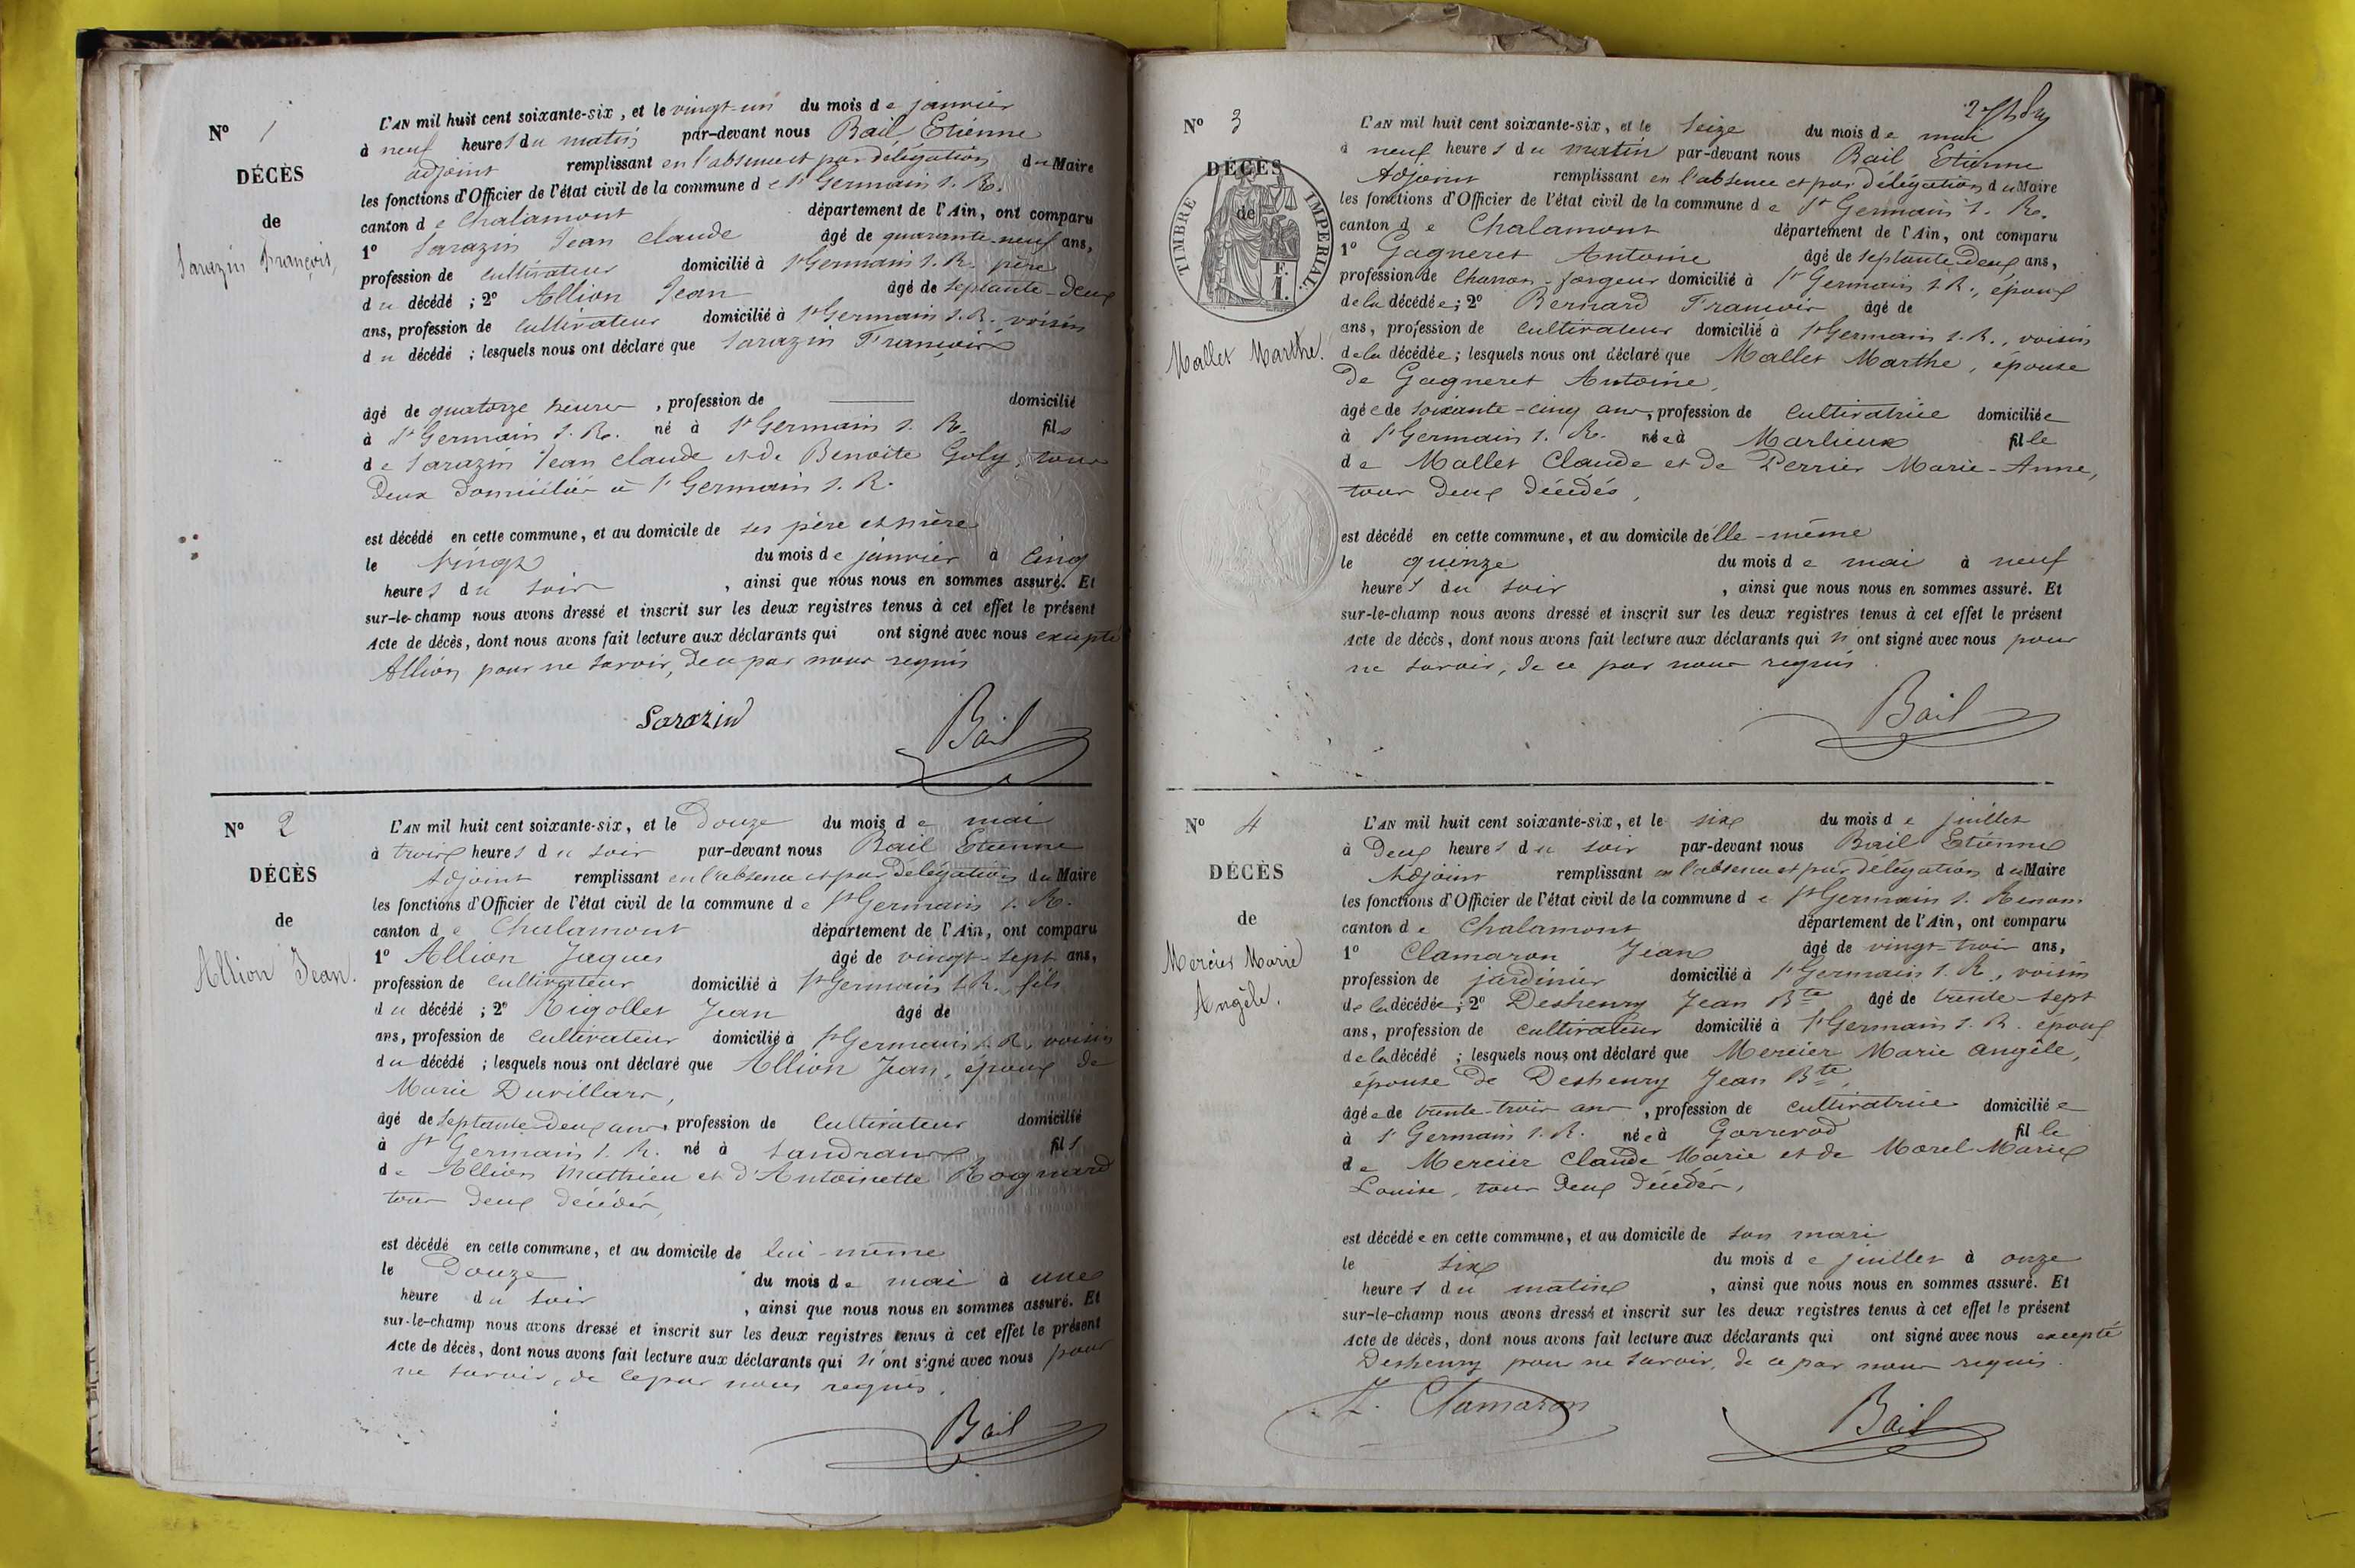 N° 1
DÉCÈS
de
Sarazin François,
L'AN mil huit cent soixante-six, et le vingt-un du mois de janvier
à neuf heures du matin par-devant nous Bail Etienne
adjoint remplissant en l'absence et par délégation du Maire
les fonctions d'Officier de l'état civil de la commune de St Germain s. R.
canton de Chalamont département de l'Ain, ont comparu
1° Sarazin Jean Claude âgé de quarante-neuf ans,
profession de cultivateur domicilié à St Germain s. R. père
du décédé ; 2° Allion Jean âgé de septante-deux
ans, profession de cultivateur domicilié à St Germain s. R. voisin
du décédé ; lesquels nous ont déclaré que Sarazin François
âgé de quatorze heures, profession de domicilié
à St Germain s. R. né à St Germain s. R. fils
de Sarazin Jean Claude et de Benoite Goly, tous
deux domiciliés à St Germain s. R.
est décédé en cette commune, et au domicile de ses père et mère
le vingt du mois de janvier à cinq
heures du soir, ainsi que nous nous en sommes assuré. Et
sur-le-champ nous avons dressé et inscrit sur les deux registres tenus à cet effet le présent
Acte de décès, dont nous avons fait lecture aux déclarants qui ont signé avec nous excepté
Allion pour ne savoir, de ce par nous requis
Sarazin Bail
N° 2
DÉCÈS
de
Allion Jean.
L'AN mil huit cent soixante-six, et le Douze du mois de mai
à trois heures du soir par-devant nous Bail Etienne
Adjoint remplissant en l'absence et par délégation du Maire
les fonctions d'Officier de l'état civil de la commune de St Germain s. R.
canton de Chalamont département de l'Ain, ont comparu
1° Allion Jaques âgé de vingt-sept ans,
profession de cultivateur domicilié à St Germain s. R. fils
du décédé ; 2° Rigollet Jean âgé de
ans, profession de cultivateur domicilié à St Germain s. R. voisin
du décédé ; lesquels nous ont déclaré que Allion Jean, époux de
Marie Duvillars,
âgé de septante-deux ans, profession de cultivateur domicilié
à St Germain s. R. né à Sandrans fils
de Allion Mathieu et d'Antoinette Rognard
tous deux décédés,
est décédé en cette commune, et au domicile de lui-même
le Douze du mois de mai à une
heure du soir, ainsi que nous nous en sommes assuré. Et
sur-le-champ nous avons dressé et inscrit sur les deux registres tenus à cet effet le présent
Acte de décès, dont nous avons fait lecture aux déclarants qui n'ont signé avec nous pour
ne savoir, de ce par nous requis.
Bail
N° 3
DÉCÈS
de
TIMBRE IMPERIAL.
Mallet Marthe.
L'AN mil huit cent soixante-six, et le seize du mois de mai
à neuf heures du matin par-devant nous Bail Etienne
Adjoint remplissant en l'absence et par délégation du Maire
les fonctions d'Officier de l'état civil de la commune de St Germain s. R.
canton de Chalamont département de l'Ain, ont comparu
1° Gagneret Antoine âgé de septante deux ans,
profession de Charron-forgeur domicilié à St Germain s. R., époux
de la décédée ; 2° Bernard François âgé de
ans, profession de cultivateur domicilié à St Germain s. R., voisin
de la décédée ; lesquels nous ont déclaré que Mallet Marthe, épouse
de Gagneret Antoine,
âgée de soixante-cinq ans, profession de cultivatrice domiciliée
à St Germain s. R. née à Marlieux fille
de Mallet Claude et de Perrier Marie-Anne,
tous deux décédés,
est décédé en cette commune, et au domicile d'elle-même
le quinze du mois de mai à neuf
heures du soir, ainsi que nous nous en sommes assuré. Et
sur-le-champ nous avons dressé et inscrit sur les deux registres tenus à cet effet le présent
Acte de décès, dont nous avons fait lecture aux déclarants qui n'ont signé avec nous pour
ne savoir, de ce par nous requis.
Bail
N° 4
DÉCÈS
de
Mercier Marie
Angèle.
L'AN mil huit cent soixante-six, et le six du mois de juillet
à Deux heures du soir par-devant nous Bail Etienne
Adjoint remplissant en l'absence et par délégation du Maire
les fonctions d'Officier de l'état civil de la commune de St Germain s. Renom
canton de Chalamont département de l'Ain, ont comparu
1° Clamaron Jean âgé de vingt-trois ans,
profession de jardinier domicilié à St Germain s. R., voisin
de la décédée ; 2° Deshenry Jean Bte âgé de trente-sept
ans, profession de cultivateur domicilié à St Germain s. R. époux
de la décédé ; lesquels nous ont déclaré que Mercier Marie Angèle,
épouse de Deshenry Jean Bte,
âgée de trente-trois ans, profession de cultivatrice domiciliée
à St Germain s. R. née à Gorrevod fille
de Mercier Claude Marie et de Morel Marie
Louise, tous deux décédés,
est décédée en cette commune, et au domicile de son mari
le six du mois de juillet à onze
heures du matin, ainsi que nous nous en sommes assuré. Et
sur-le-champ nous avons dressé et inscrit sur les deux registres tenus à cet effet le présent
Acte de décès, dont nous avons fait lecture aux déclarants qui ont signé avec nous excepté
Deshenry pour ne savoir, de ce par nous requis.
J. Clamaron Bail